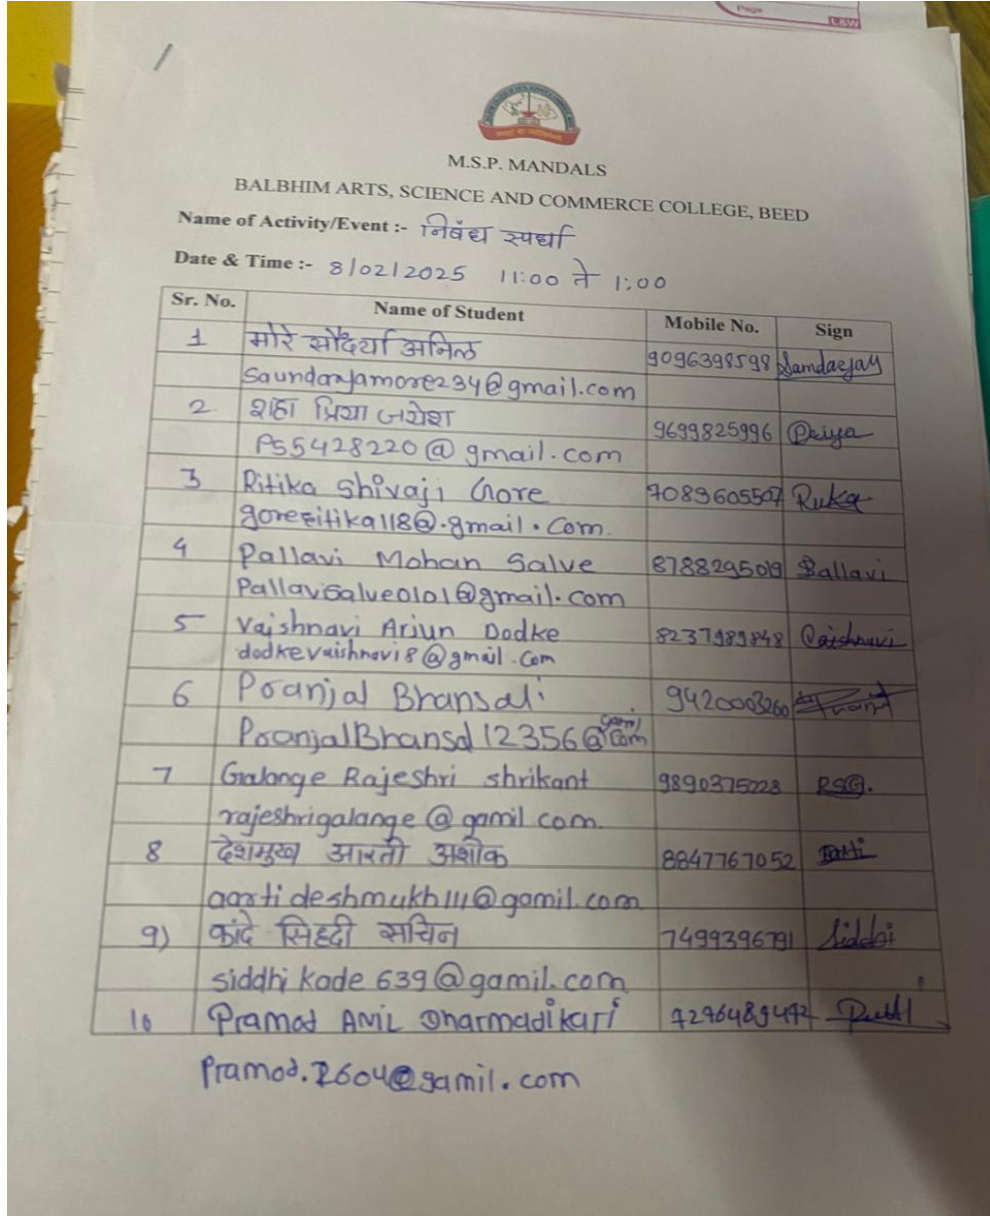 Page
L&W
M.S.P. MANDALS
BALBHIM ARTS, SCIENCE AND COMMERCE COLLEGE, BEED
Name of Activity/Event :- निबंध स्पर्धा
Date & Time :- 8/02/2025 11:00 ते 1:00
Sr. No. Name of Student Mobile No. Sign
1 मोरे सौंदर्या अनिल 9096398598
saundaryamore234@gmail.com
2 शहा प्रिया जयेश 9699825996 Priya
PS5428220@gmail.com
3 Ritika Shivaji Gore 7089605507
goreritika118@.gmail.com
4 Pallavi Mohan Salve 8788295019 Pallavi
Pallavisalve0101@gmail.com
5 Vaishnavi Arjun Dodke 8237989848 Vaishnavi
dodkevaishnavi8@gmail.com
6 Pranjal Bhansali 9420003260
PranjalBhansal12356@gamil.com
7 Galange Rajeshri shrikant 9890375228 RSG.
rajeshrigalange@gamil.com.
8 देशमुख आरती अशोक 8847767052
aartideshmukh111@gamil.com
9) कांदे सिद्दी सचिन 7499396791 Siddhi
siddhikade639@gamil.com
10 Pramod AMIL Dharmadikari 7276489472
Pramod.2604@gamil.com